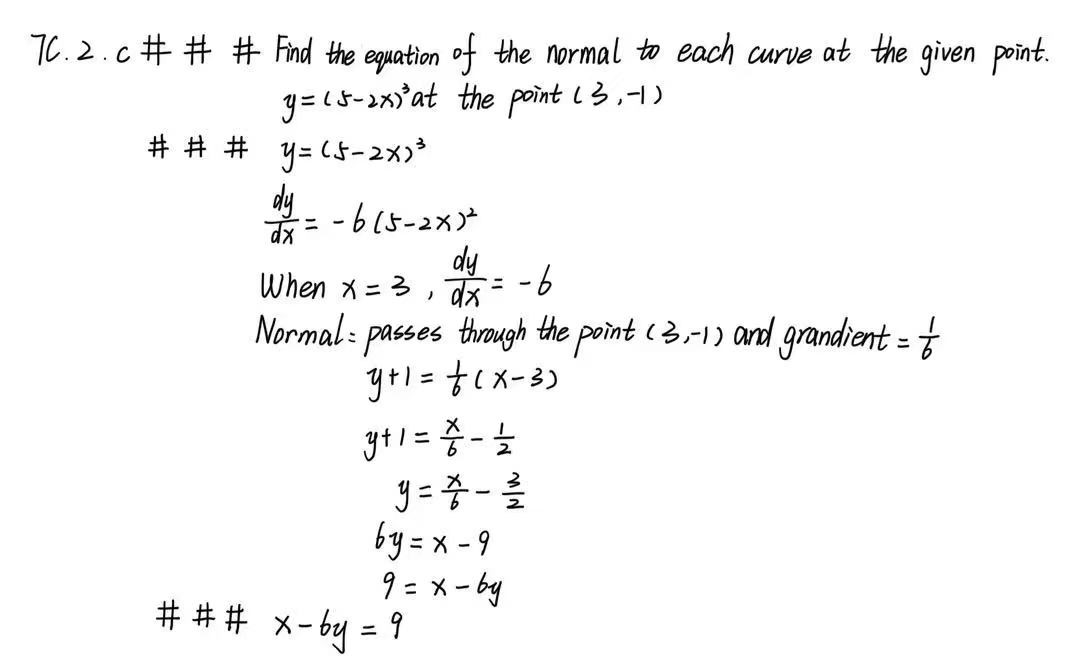 7C.2.c # # # Find the equation of the normal to each curve at the given point.
y=(5-2x)³ at the point (3,-1)
# # # y=(5-2x)³
dy/dx = -6(5-2x)²
When x=3, dy/dx = -6
Normal: passes through the point (3,-1) and grandient = 1/6
y+1 = 1/6 (x-3)
y+1 = x/6 - 1/2
y = x/6 - 3/2
6y = x-9
9 = x-6y
# # # x-6y = 9